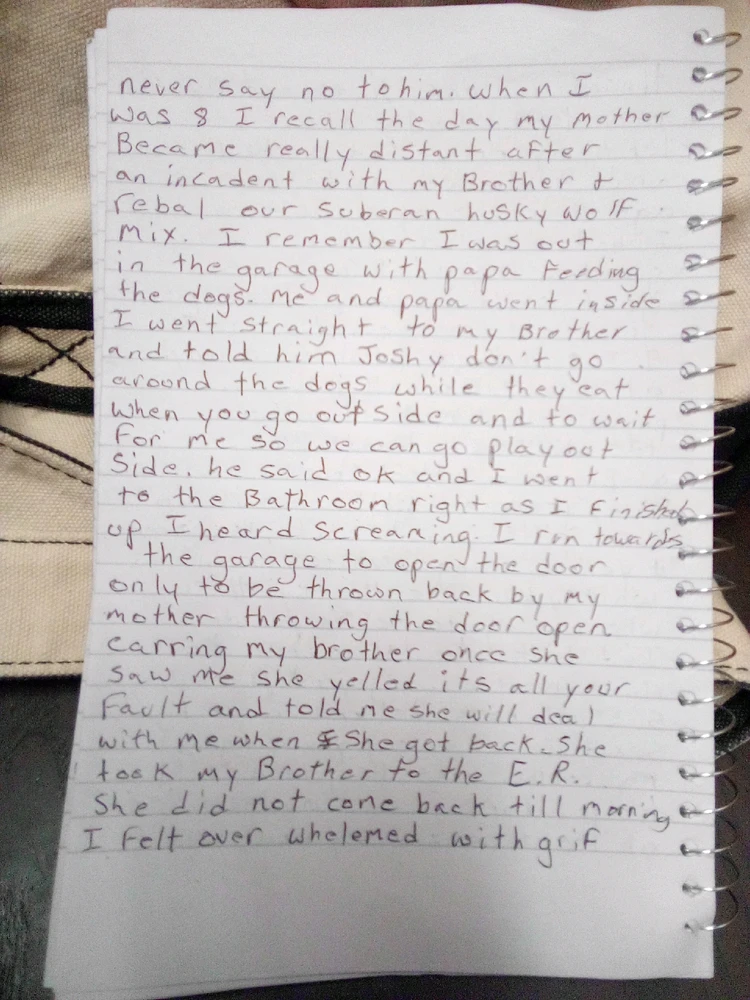 never say no to him. when I
was 8 I recall the day my mother
Became really distant after
an incadent with my Brother &
rebal our Suberan husky wolf
mix. I remember I was out
in the garage with papa Feeding
the dogs. me and papa went inside
I went straight to my Brother
and told him Joshy don't go
around the dogs while they eat
when you go outside and to wait
For me so we can go play out
Side. he said ok and I went
to the Bathroom right as I Finished
up I heard Screaming. I run towards
the garage to open the door
only to be thrown back by my
mother throwing the door open
carring my brother once she
saw me she yelled its all your
Fault and told me she will deal
with me when She got back. She
took my Brother to the E.R.
She did not come back till morning
I Felt over whelemed with grif